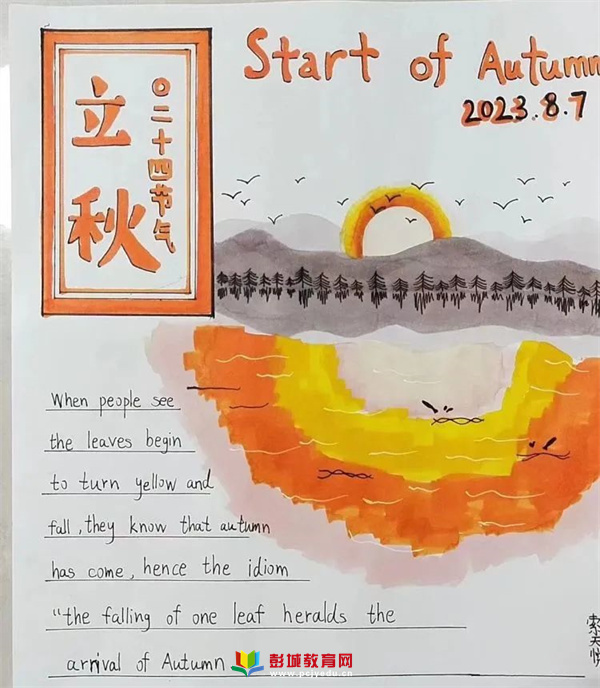 Start of Autumn
2023.8.7
立秋
二十四节气
When people see
the leaves begin
to turn yellow and
fall, they know that autumn
has come, hence the idiom
"the falling of one leaf heralds the
arrival of Autumn
索天悦
彭城教育网
www.pcjyedu.cn